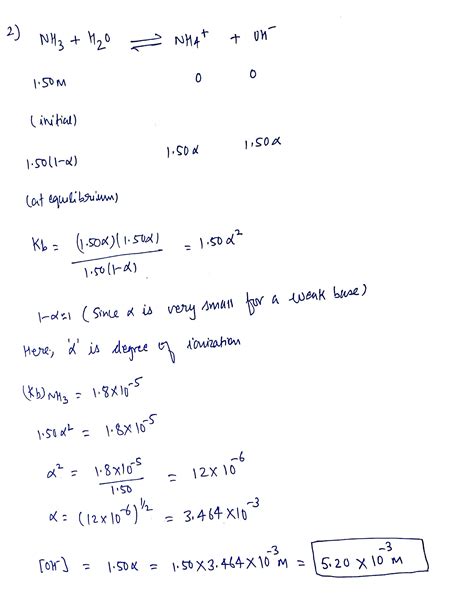 2) NH₃ + H₂O ⇌ NH4⁺ + OH⁻
1.50M 0 0
(initial)
1.50(1-α) 1.50α 1.50α
(at equilibrium)
Kb = (1.50α)(1.50α) / 1.50(1-α) = 1.50α²
1-α=1 (Since α is very small for a weak base)
Here, 'α' is degree of ionization
(Kb)NH₃ = 1.8×10⁻⁵
1.50α² = 1.8×10⁻⁵
α² = 1.8×10⁻⁵ / 1.50 = 12×10⁻⁶
α = (12×10⁻⁶)^1/2 = 3.464×10⁻³
[OH⁻] = 1.50α = 1.50×3.464×10⁻³ M = 5.20 × 10⁻³ M